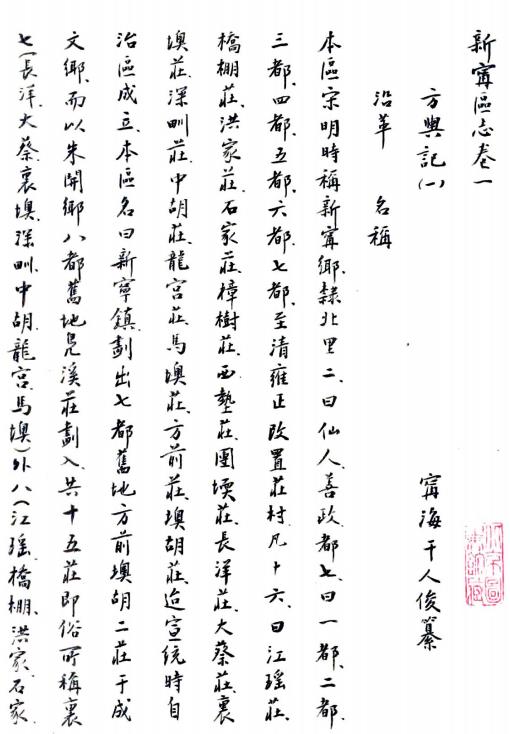 新甯區志卷一
方輿記(一)
甯海干人俊纂
沿革 名稱
本區宋明時稱新甯鄉、隸北里二、曰仙人善政、都七、曰一都、二都、
三都、四都、五都、六都、七都、至清雍正改置莊村凡十六、曰江瑤莊、
橋棚莊、洪家莊、石家莊、樟樹莊、西墊莊、團堧莊、長洋莊、大蔡莊、裏
墺莊、深甽莊、中胡莊、龍宮莊、馬墺莊、方前莊、墺胡莊、迨宣統時自
治區成立、本區名曰新寧鎮、劃出七都舊地方前墺胡二莊于成
文鄉、而以朱開鄉八都舊地凫溪莊劃入、共十五莊即俗所稱裏
七(長洋、大蔡、裏墺、深甽、中胡、龍宮、馬墺)外八(江瑤、橋棚、洪家、石家、